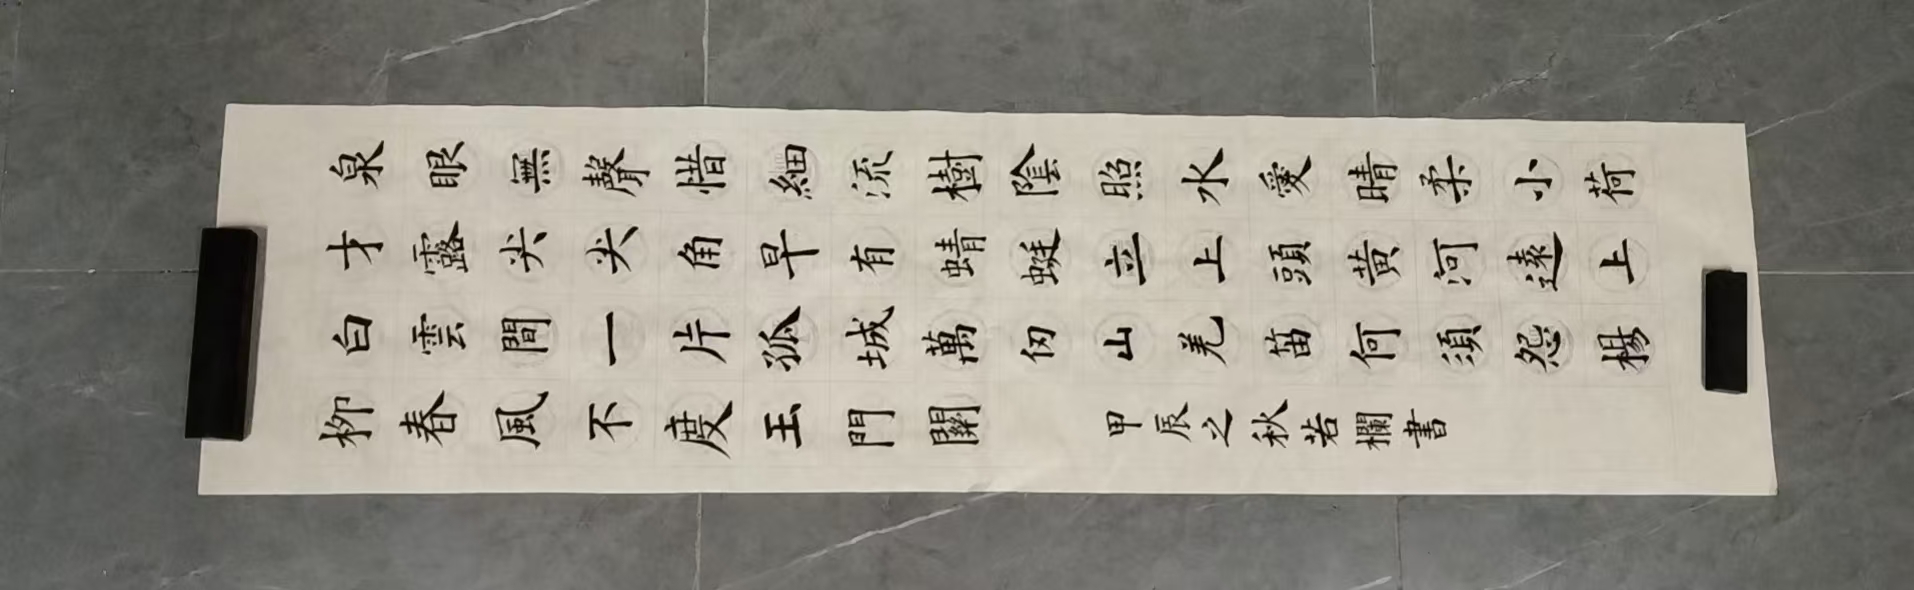 泉眼無聲惜細流樹陰照水愛晴柔小荷
才露尖尖角早有蜻蜓立上頭黄河遠上
白雲間一片孤城萬仞山羌笛何須怨楊
柳春風不度玉門關
甲辰之秋若欄書